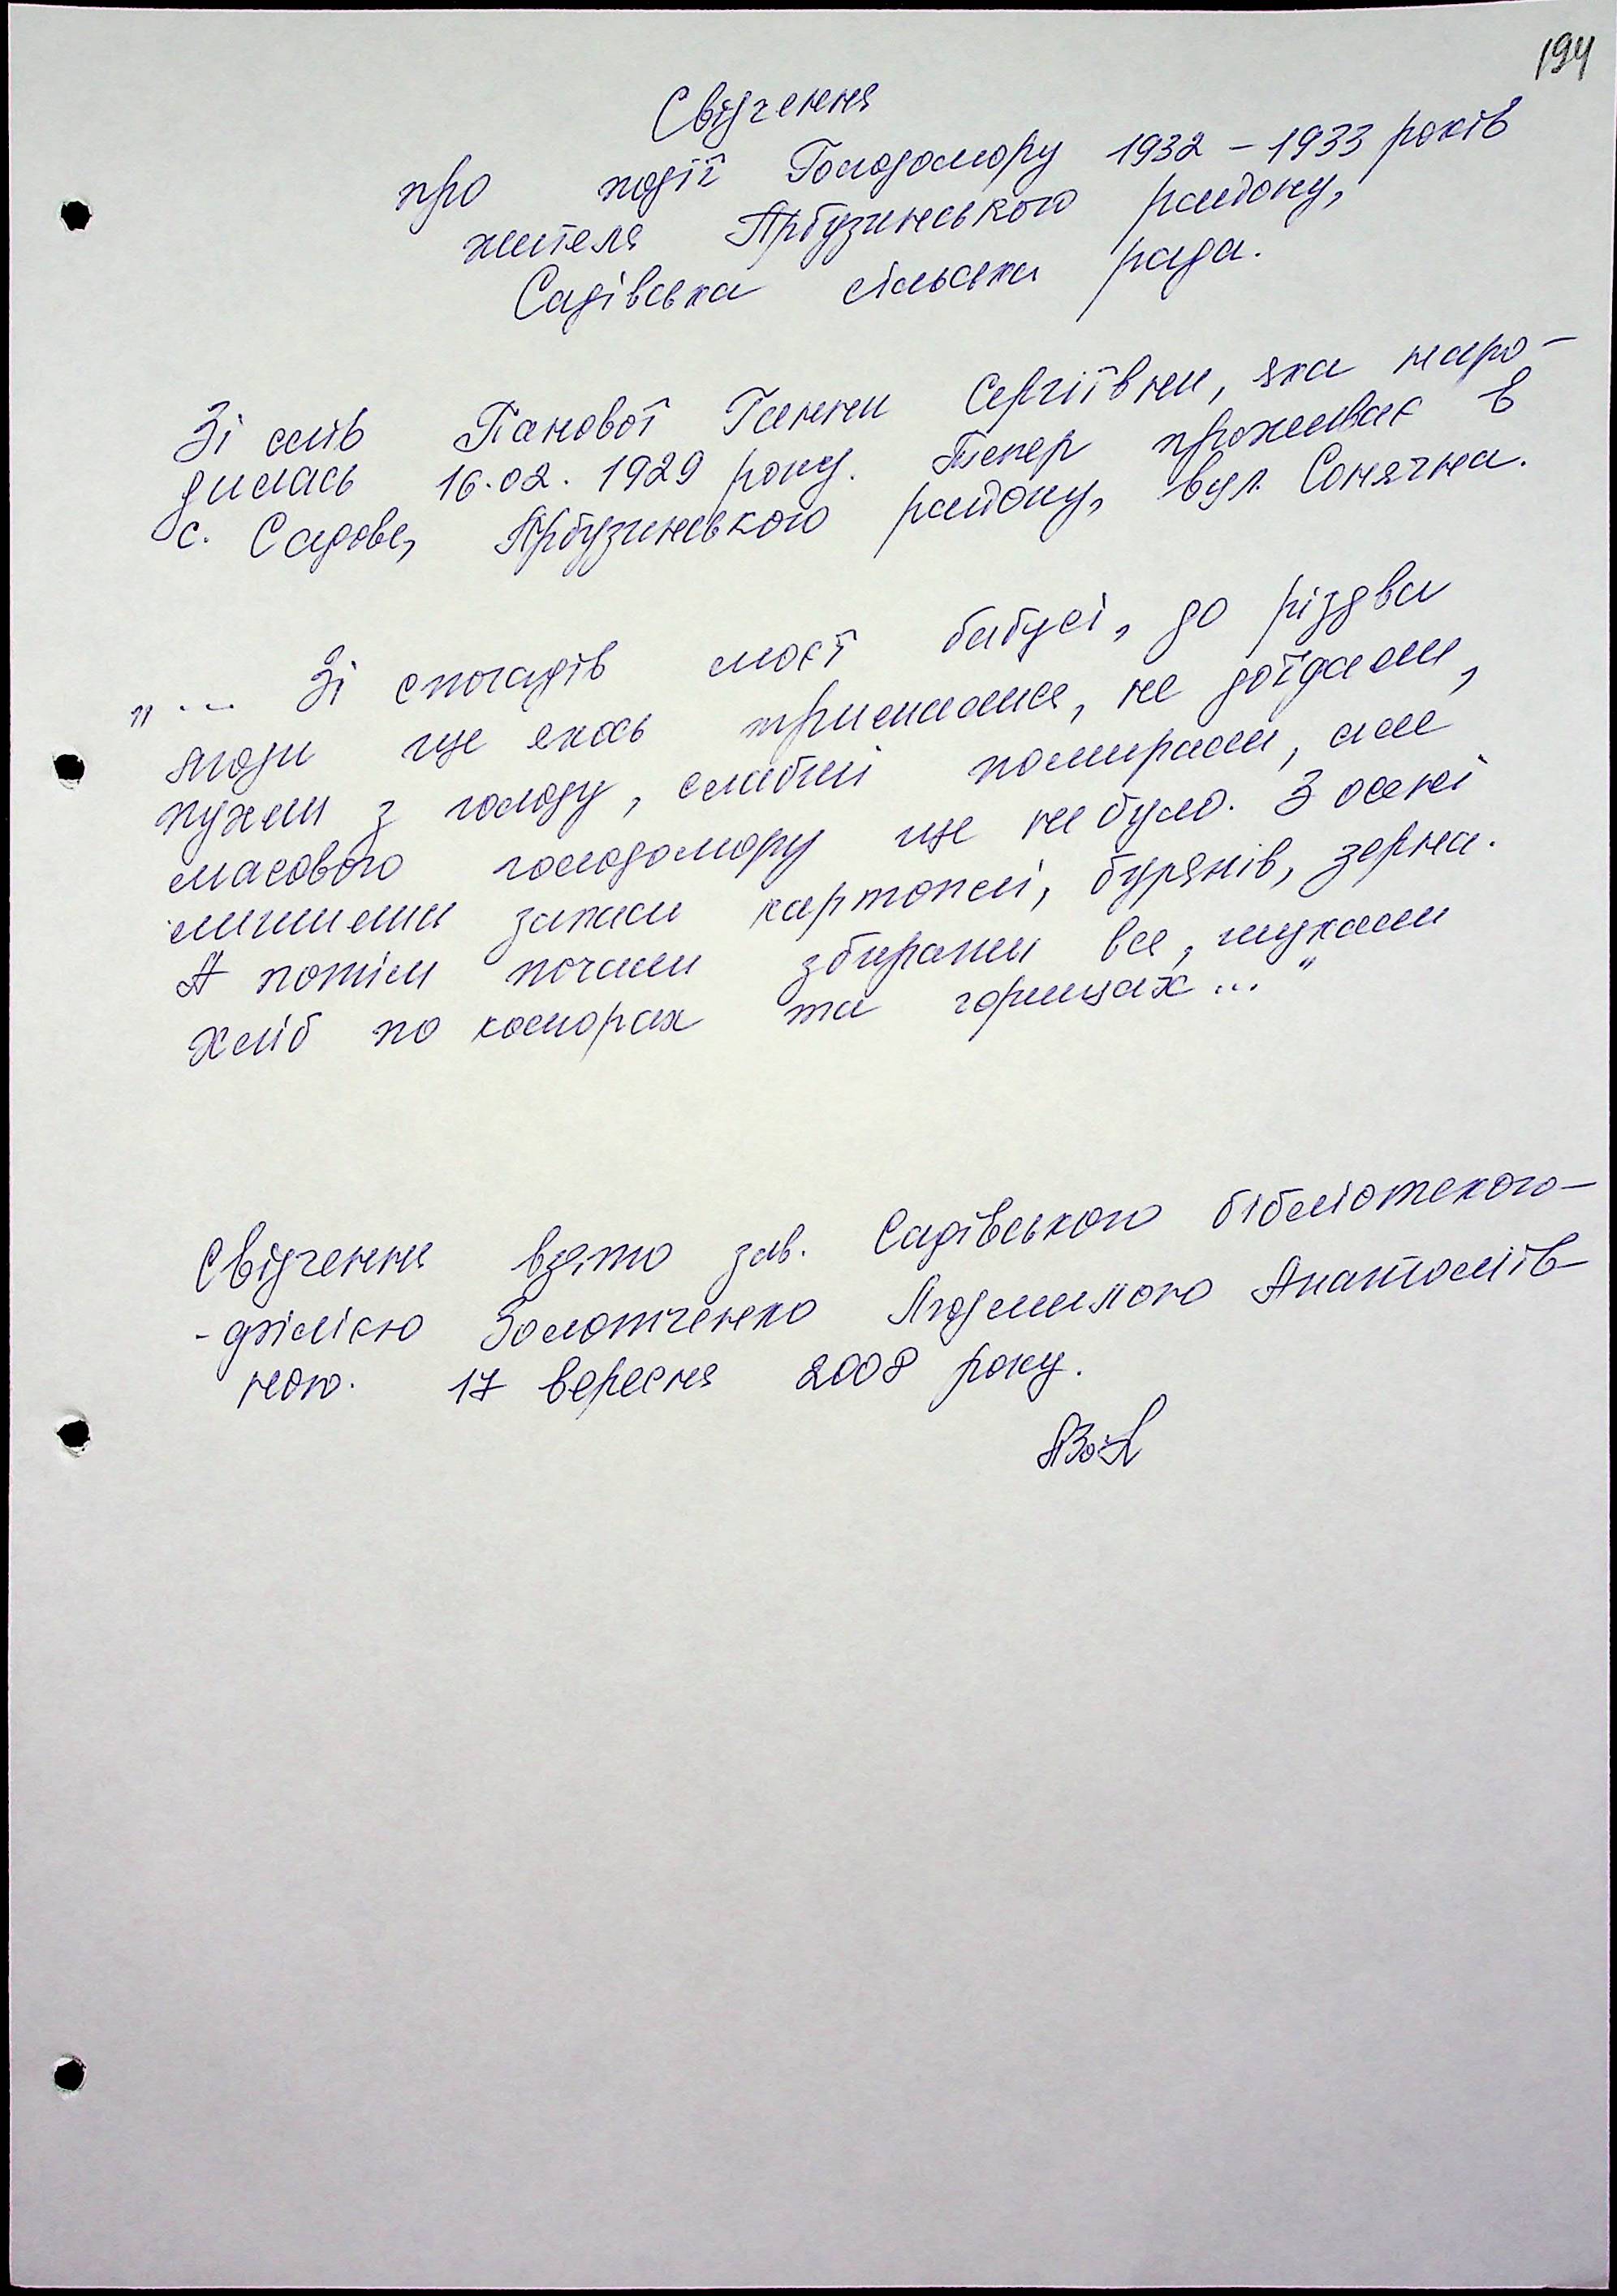 194
Свідчення
про події Голодомору 1932 - 1933 років
жителя Арбузинського району,
Садівська сільська рада.
Зі слів Панової Ганни Сергіївни, яка наро-
дилась 16.02.1929 року. Тепер проживає в
с. Садове, Арбузинського району, вул. Сонячна.
„... Зі спогадів моєї бабусі, до різдва
люди ще якось трималися, не доїдали,
пухли з голоду, слабші помирали, але
масового голодомору ще не було. З осені
лишили запаси картоплі, бурянів, зерна.
А потім почали збирати все, шукали
хліб по коморах та горищах..."
Свідчення взято зав. Садівською бібліотекою-
-філією Золотченко Людмилою Анатоліїв-
ною. 17 вересня 2008 року.